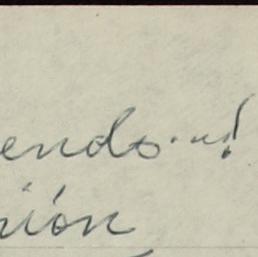 endo..."!
nión